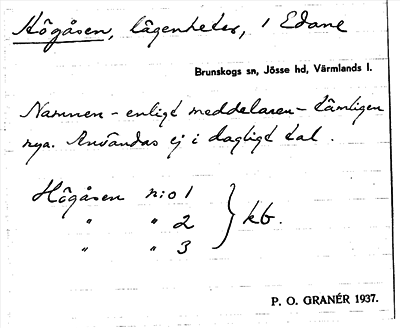 Högåsen, lägenheter, i Edane
Brunskogs sn, Jösse hd, Värmlands l.
Namnen - enligt meddelaren - tämligen
nya. Användas ej i dagligt tal.
Högåsen n:o 1
" " 2 } kb.
" " 3
P. O. GRANÉR 1937.